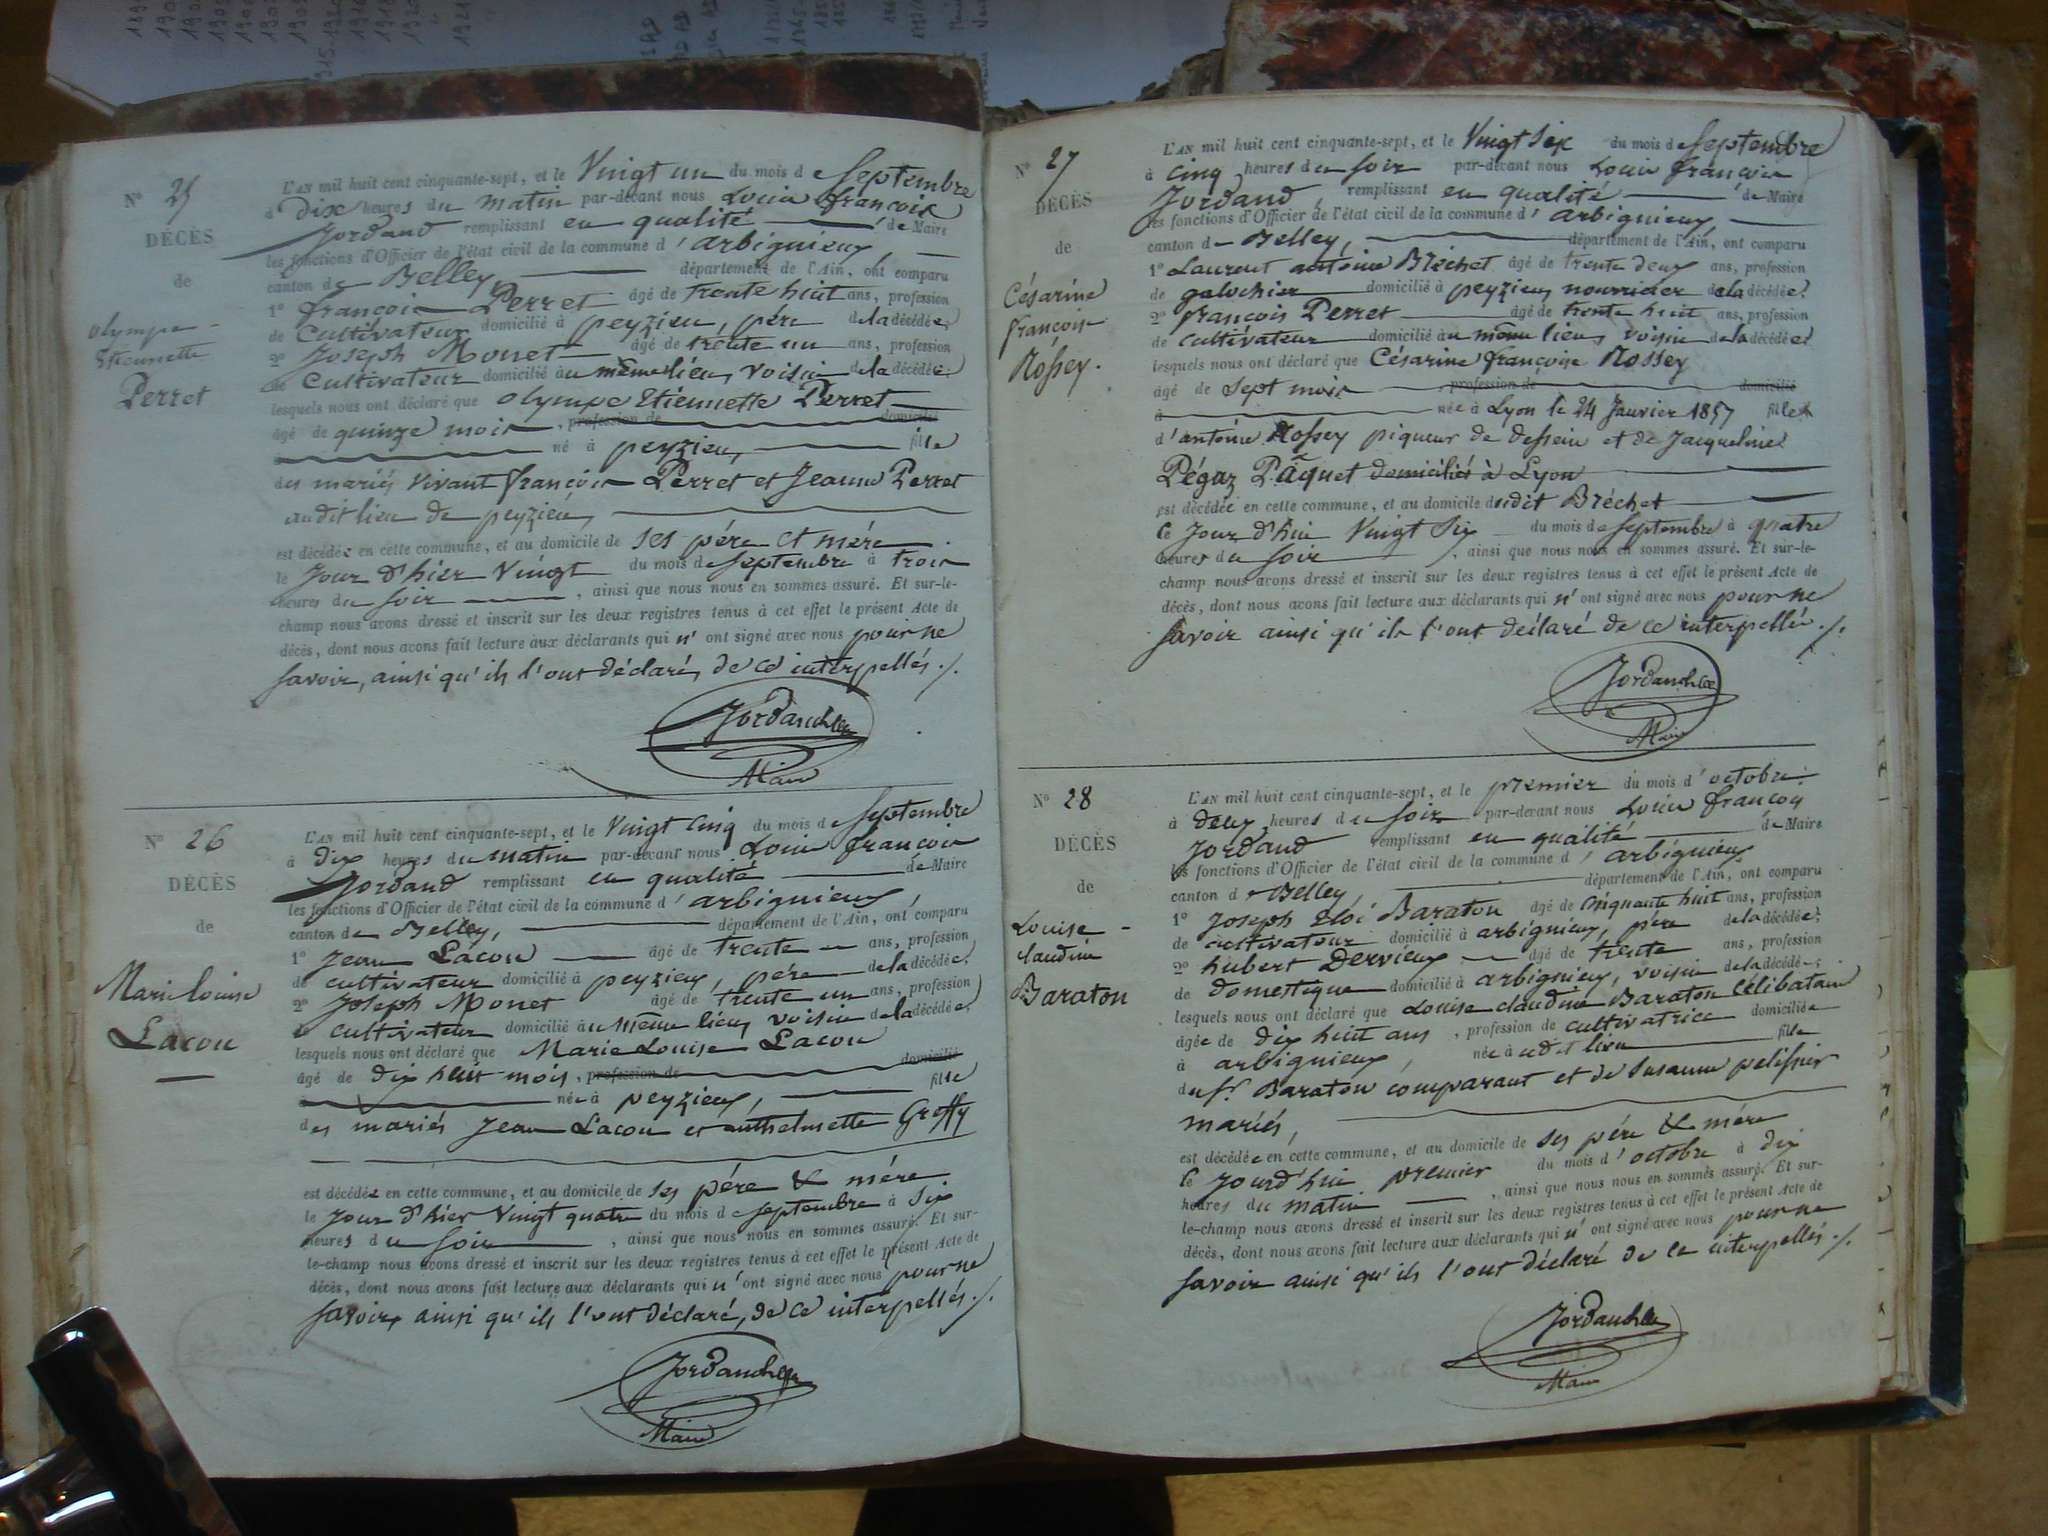 N° 25
DÉCÈS
de
Olympe
Etiennette
Perret
L'AN mil huit cent cinquante-sept, et le Vingt un du mois de Septembre
à Dix heures du matin par-devant nous Louis françois
Jordand remplissant en qualité de Maire
les fonctions d'Officier de l'état civil de la commune d'arbignieux,
canton de Belley, département de l'Ain, ont comparu
1° françois Perret âgé de trente huit ans, profession
de Cultivateur domicilié à peyzieu, père de la décédée,
2° Joseph Monet âgé de trente un ans, profession
de Cultivateur domicilié au même lieu, voisin de la décédée,
lesquels nous ont déclaré que Olympe Etiennette Perret
âgé de quinze mois, profession de domicilié
né à peyzieu, fille
des mariés vivant françois Perret et Jeanne Perret
audit lieu de peyzieu,
est décédée en cette commune, et au domicile de ses père et mère
le Jour d'hier Vingt du mois de Septembre à trois
heures du soir, ainsi que nous nous en sommes assuré. Et sur-le-
champ nous avons dressé et inscrit sur les deux registres tenus à cet effet le présent Acte de
décès, dont nous avons fait lecture aux déclarants qui n'ont signé avec nous pour ne
savoir, ainsi qu'ils l'ont déclarés, de ce interpellés ./.
Maire
N° 26
DÉCÈS
de
Marie Louise
Lacou
L'AN mil huit cent cinquante-sept, et le Vingt Cinq du mois de Septembre
à Dix heures du matin par-devant nous Louis françois
Jordand remplissant en qualité de Maire
les fonctions d'Officier de l'état civil de la commune d'arbignieux
canton de Belley, département de l'Ain, ont comparu
1° Jean Lacou âgé de trente ans, profession
de cultivateur domicilié à peyzieu, père de la décédée,
2° Joseph Monet âgé de trente un ans, profession
de cultivateur domicilié au même lieu, voisin de la décédée,
lesquels nous ont déclaré que Marie Louise Lacou
âgé de dix huit mois, profession de domicilié
née à peyzieu, fille
des mariés Jean Lacou et anthelmette Groffy
est décédée en cette commune, et au domicile de ses père & mère
le Jour d'hier Vingt quatre du mois de Septembre à Six
heures du soir, ainsi que nous nous en sommes assuré. Et sur-
le-champ nous avons dressé et inscrit sur les deux registres tenus à cet effet le présent Acte de
décès, dont nous avons fait lecture aux déclarants qui n'ont signé avec nous pour ne
savoir, ainsi qu'ils l'ont déclaré, de ce interpellés ./.
Maire
N° 27
DÉCÈS
de
Césarine
françoise
Rossey.
L'AN mil huit cent cinquante-sept, et le Vingt Six du mois de Septembre
à Cinq heures du soir par-devant nous Louis françois
Jordand, remplissant en qualité de Maire
les fonctions d'Officier de l'état civil de la commune d'arbignieux
canton de Belley, département de l'Ain, ont comparu
1° Laurent antoine Bréchet âgé de trente deux ans, profession
de galochier domicilié à peyzieu, nourricier de la décédée,
2° françois Perret âgé de trente huit ans, profession
de cultivateur domicilié au même lieu, voisin de la décédée,
lesquels nous ont déclaré que Césarine françoise Rossey
âgé de Sept mois profession de domicilié
à née à Lyon le 24 Janvier 1857 fille
d'antoine Rossey piqueur de dessein et de Jacqueline
Pégaz Pâquet domiciliés à Lyon
est décédée en cette commune, et au domicile dudit Bréchet
le Jour d'hui Vingt Six du mois de Septembre à quatre
heures du soir, ainsi que nous nous en sommes assuré. Et sur-le-
champ nous avons dressé et inscrit sur les deux registres tenus à cet effet le présent Acte de
décès, dont nous avons fait lecture aux déclarants qui n'ont signé avec nous pour ne
savoir ainsi qu'ils l'ont déclaré de ce interpellés ./.
Maire
N° 28
DÉCÈS
de
Louise
claudine
Baraton
L'AN mil huit cent cinquante-sept, et le premier du mois d'octobre
à deux heures du soir par-devant nous Louis françois
Jordand remplissant en qualité de Maire
les fonctions d'Officier de l'état civil de la commune d'arbignieux
canton de Belley, département de l'Ain, ont comparu
1° Joseph Eloi Baraton âgé de cinquante huit ans, profession
de cultivateur domicilié à arbignieux, père de la décédée,
2° hubert Dervieux âgé de trente ans, profession
de domestique domicilié à arbignieux, voisin de la décédée,
lesquels nous ont déclaré que Louise claudine Baraton Célibataire
âgée de dix huit ans, profession de cultivatrice domiciliée
à arbignieux, née à udit lieu fille
du Sr. Baraton comparant et de Susanne pelissier
mariés,
est décédée en cette commune, et au domicile de ses père & mère
le Jourd'hui premier du mois d'octobre à dix
heures du matin, ainsi que nous nous en sommes assuré. Et sur-
le-champ nous avons dressé et inscrit sur les deux registres tenus à cet effet le présent Acte de
décès, dont nous avons fait lecture aux déclarants qui n'ont signé avec nous pour ne
savoir ainsi qu'ils l'ont déclaré de ce interpellés ./.
Maire